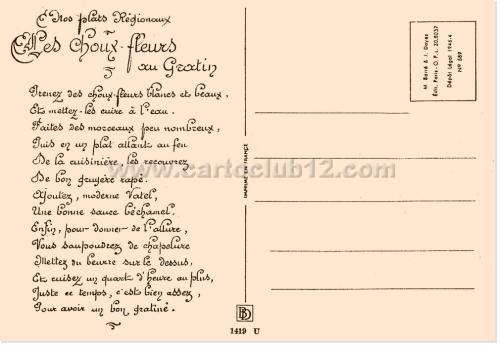 Nos plats Régionaux
Les choux-fleurs
au Gratin
Prenez des choux-fleurs blancs et beaux.
Et mettez-les cuire à l'eau.
Faites des morceaux peu nombreux,
Puis en un plat allant au feu
De la cuisinière, les recouvrez
De bon gruyère rapé.
Ajoutez, moderne Vatel,
Une bonne sauce béchamel.
Enfin, pour donner de l'allure,
Vous saupoudrez de chapelure
Mettez du beurre sur le dessus,
Et cuisez un quart d'heure au plus,
Juste ce temps, c'est bien assez,
Pour avoir un bon gratiné.
www.cartoclub12.com
IMPRIMÉ EN FRANCE
BD
1419 U
M. Barré & J. Dayez
Édit. Paris - O.P.L. 30.8037
Dépôt Légal 1946-4
No 889